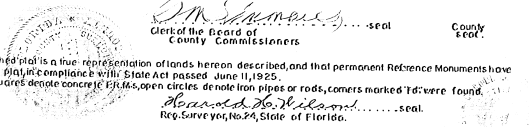 seal
County seal.
Clerk of the Board of
County Commissioners
plat is a true representation of lands hereon described, and that permanent Reference Monuments have
plat, in compliance with State Act passed June 11, 1925.
denote concrete P.R.M's, open circles denote iron pipes or rods, corners marked "Fd." were found.
Harold H. Wilson seal.
Reg. Surveyor, No. 24, State of Florida.